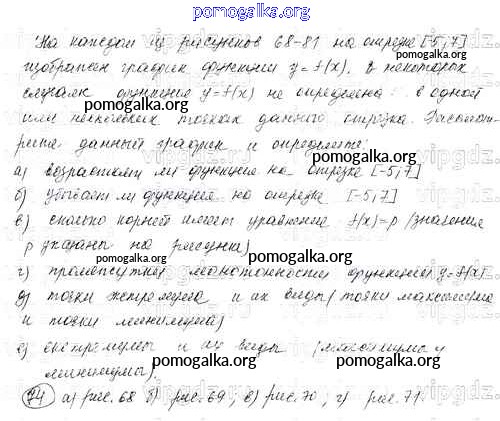 pomogalka.org
На каждом из рисунков 68-81 на отрезке [-5,7]
изображен график функции y=f(x), в некоторых
случаях функция y=f(x) не определена в одной
pomogalka.org
или нескольких точках данного отрезка. Рассмот-
pomogalka.org
рите данный график и определите:
pomogalka.org
а) возрастает ли функция на отрезке [-5,7]
б) убывает ли функция на отрезке [-5,7]
pomogalka.org
в) сколько корней имеет уравнение f(x)=p (значения
p указаны на рисунке)
pomogalka.org
г) промежутки монотонности функции y=f(x)
pomogalka.org
д) точки экстремума и их виды (точки максимума
и точки минимума)
pomogalka.org
е) экстремумы и их виды (максимумы и
pomogalka.org
минимумы)
pomogalka.org
74 а) рис. 68 б) рис. 69, в) рис. 70, г) рис. 71.